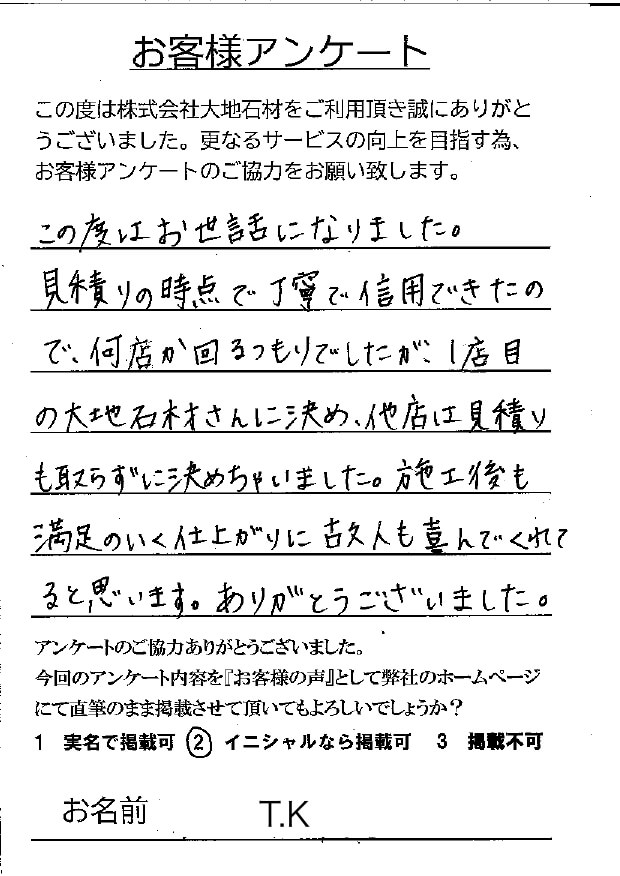 お客様アンケート
この度は株式会社大地石材をご利用頂き誠にありがと
うございました。更なるサービスの向上を目指す為、
お客様アンケートのご協力をお願い致します。
この度はお世話になりました。
見積りの時点で丁寧で信用できたの
で、何店か回るつもりでしたが、1店目
の大地石材さんに決め、他店は見積り
も取らずに決めちゃいました。施工後も
満足のいく仕上がりに故人も喜んでくれて
ると思います。ありがとうございました。
アンケートのご協力ありがとうございました。
今回のアンケート内容を『お客様の声』として弊社のホームページ
にて直筆のまま掲載させて頂いてもよろしいでしょうか？
1 実名で掲載可 2 イニシャルなら掲載可 3 掲載不可
お名前 T.K